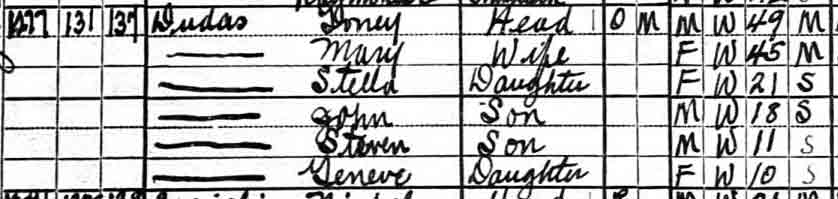 131 137 Dudas Toney Head O M M W 49 M
Mary Wife F W 45 M
Stella Daughter F W 21 S
John Son M W 18 S
Steven Son M W 11 S
Geneve Daughter F W 10 S